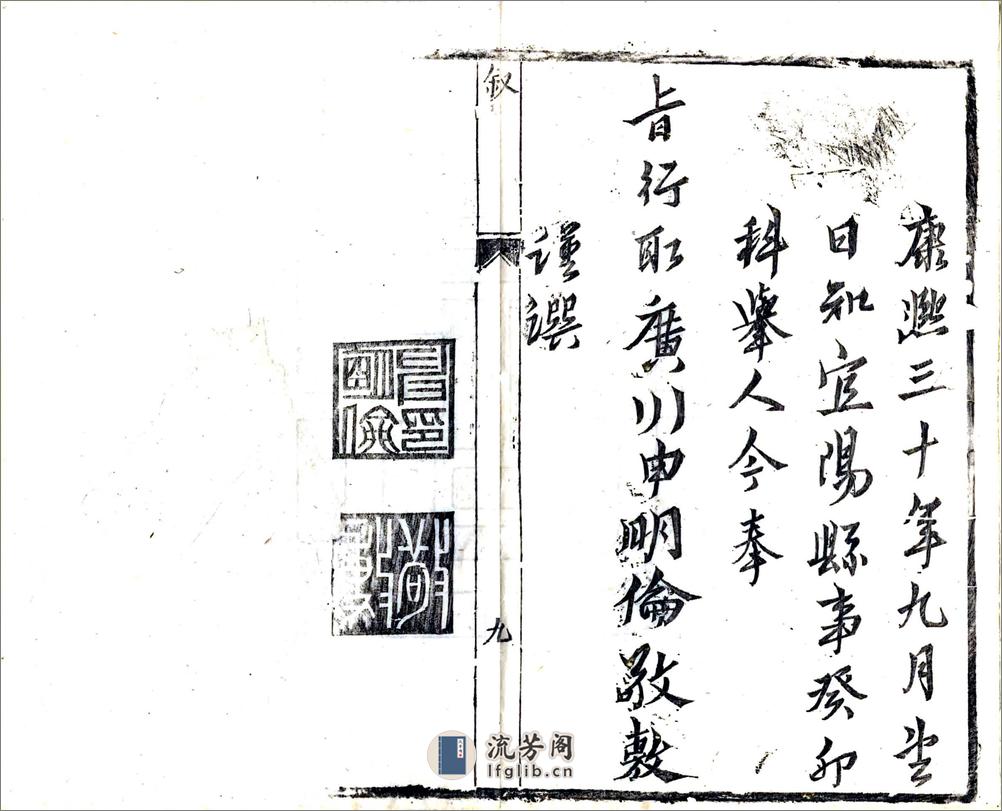 康熙三十年九月望
日知宜陽縣事癸卯
科舉人今奉
旨行取廣川申明倫敬敷
謹譔
叙
九
申明倫印
流芳阁
lfglib.cn